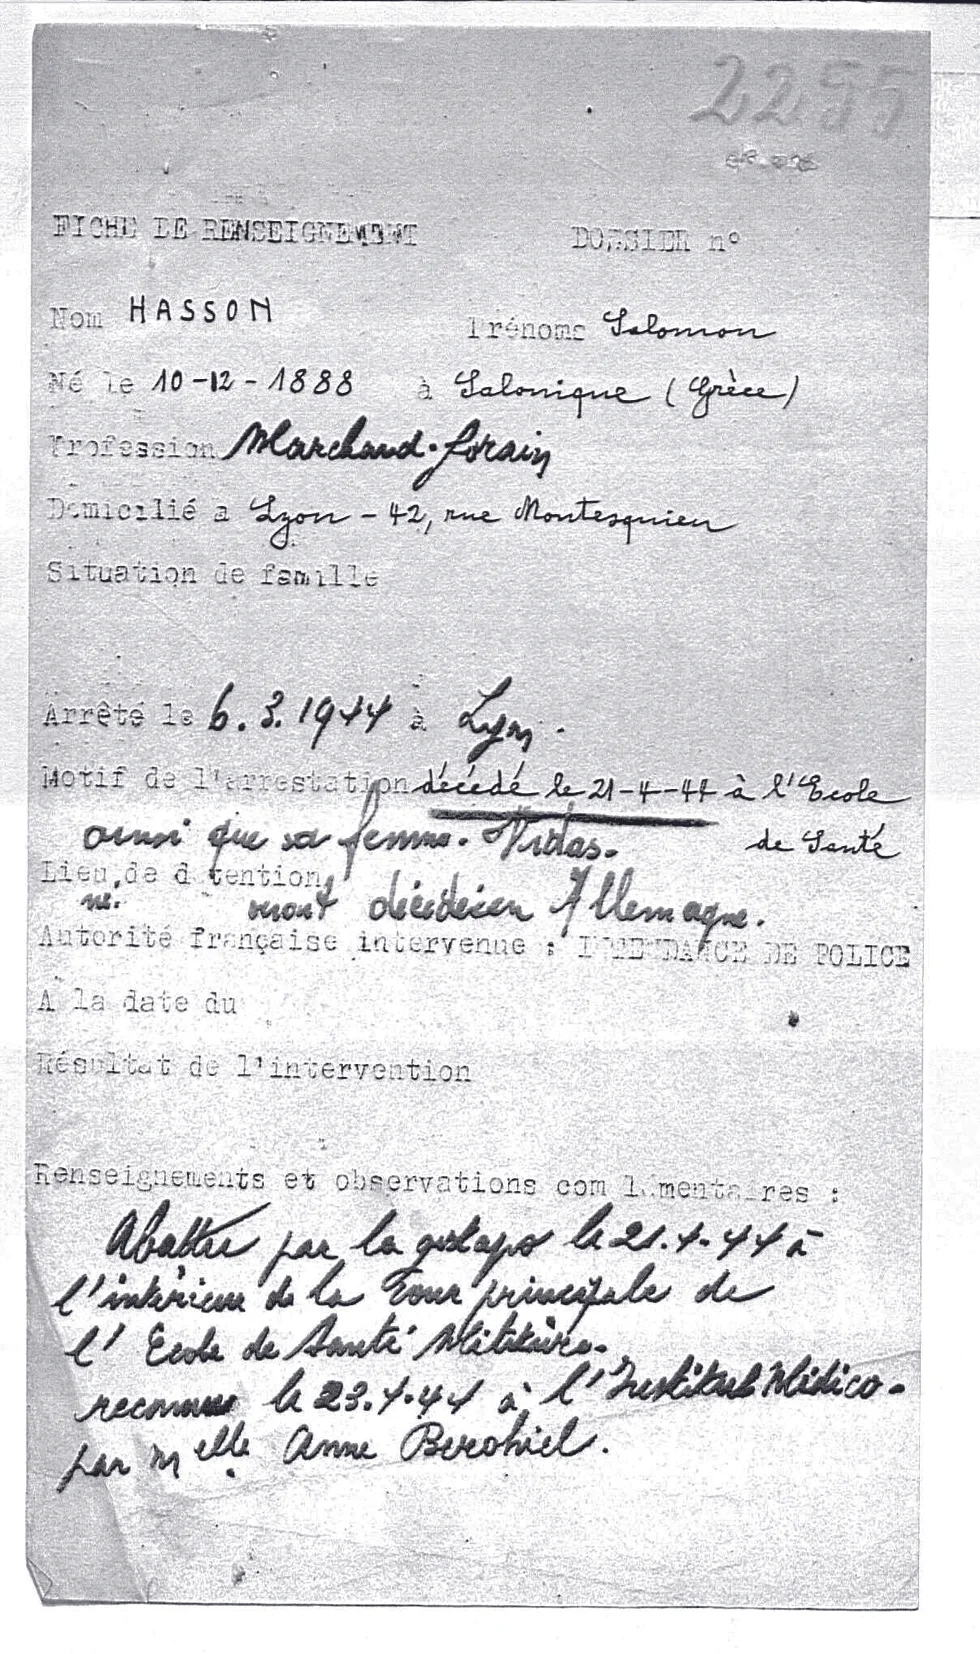 2295
FICHE DE RENSEIGNEMENT DOSSIER n°
Nom HASSON Prénoms Salomon
Né le 10-12-1888 à Salonique (Grèce)
Profession Marchand-forain
Domicilié à Lyon - 42, rue Montesquieu
Situation de famille
Arrêté le 6.3.1944 à Lyon.
Motif de l'arrestation décédé le 21-4-44 à l'Ecole
de Santé
ainsi que sa femme. Vidas.
Lieu de détention
décédé en Allemagne.
Autorité française intervenue : INTENDANCE DE POLICE
A la date du
Résultat de l'intervention
Renseignements et observations complémentaires :
Abattu par la gestapo le 21.4.44 à
l'intérieur de la Cour principale de
l'Ecole de Santé Militaire.
reconnu le 23.4.44 à l'Institut Médico-
par Melle Anne